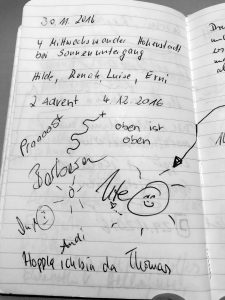 30.11.2016
4 Mittwochswander Hohenstadt
bei Sonnenuntergang
Hilde, Renate, Luise, Erni
2 Advent 4.12.2016
Prooost
oben ist
oben
Barbossa
Ute
Andi
Hoppla ich bin da Thomas